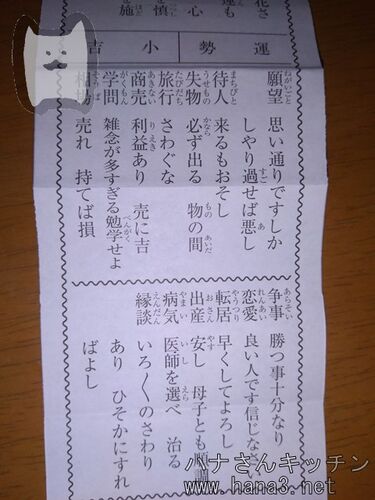 花さ
運も
心
を慎
を施
運勢 小吉
願望 思い通りですしか
しやり過せば悪し
待人 来るもおそし
失物 必ず出る 物の間
旅行 さわぐな
商売 利益あり 売に吉
学問 雑念が多すぎる勉学せよ
相場 売れ 持てば損
争事 勝つ事十分なり
恋愛 良い人です信じなさ
転居 早くしてよろし
出産 安し 母子とも順調
病気 医師を選べ 治る
縁談 いろ〱のさわり
あり ひそかにすれ
ばよし
ハナさんキッチン
www.hana3.net